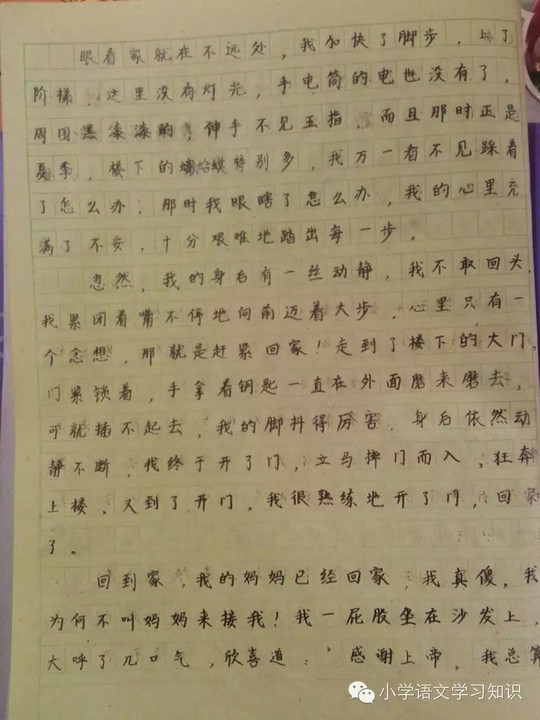 眼看家就在不远处，我加快了脚步，上了
阶梯，这里没有灯光，手电筒的电也没有了，
周围黑漆漆的，伸手不见五指，而且那时正是
夏季，楼下的蟑螂特别多，我万一看不见踩着
了怎么办，那时我眼瞎了怎么办，我的心里充
满了不安，十分艰难地踏出每一步。
忽然，我的身后有一丝动静，我不敢回头，
我紧闭着嘴不停地向前迈着大步，心里只有一
个念想，那就是赶紧回家！走到了楼下的大门，
门紧锁着，手拿着钥匙一直在外面磨来磨去，
可就插不起去，我的脚抖得厉害，身后依然动
静不断，我终于开了门，立马摔门而入，狂奔
上楼，又到了开门，我很熟练地开了门，回家
了。
回到家，我的妈妈已经回家，我真傻，我
为何不叫妈妈来接我！我一屁股坐在沙发上，
大呼了几口气，欣喜道：“感谢上帝，我总算
小学语文学习知识